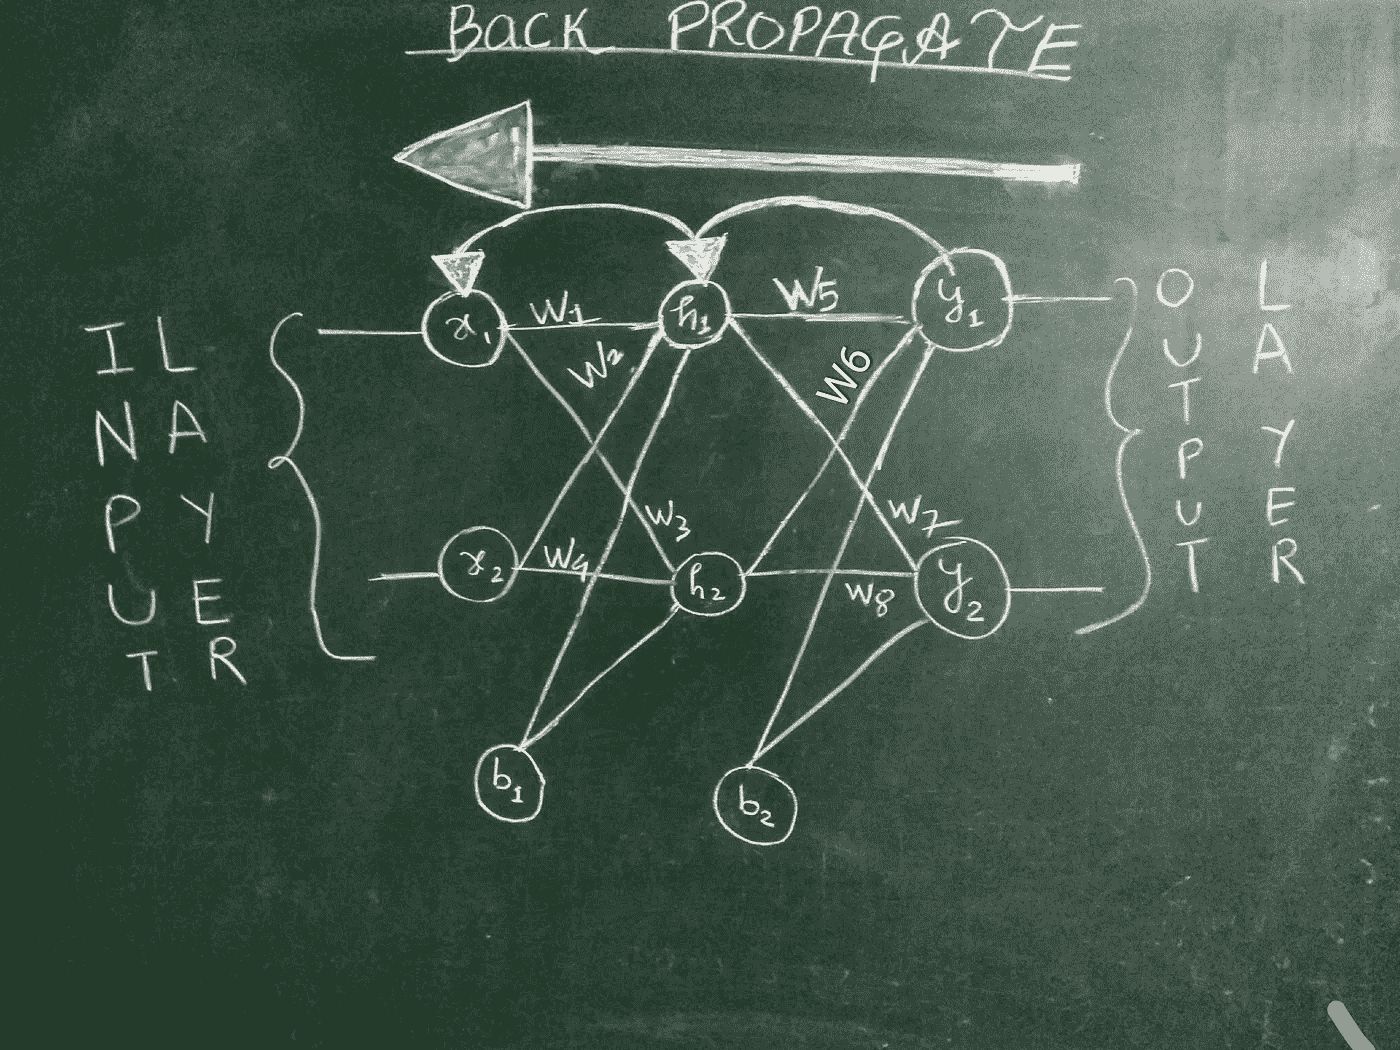 BACK PROPAGATE
INPUT LAYER
x1
W1
h1
W5
y1
W2
W6
x2
W4
W3
h2
W7
W8
y2
b1
b2
OUTPUT LAYER